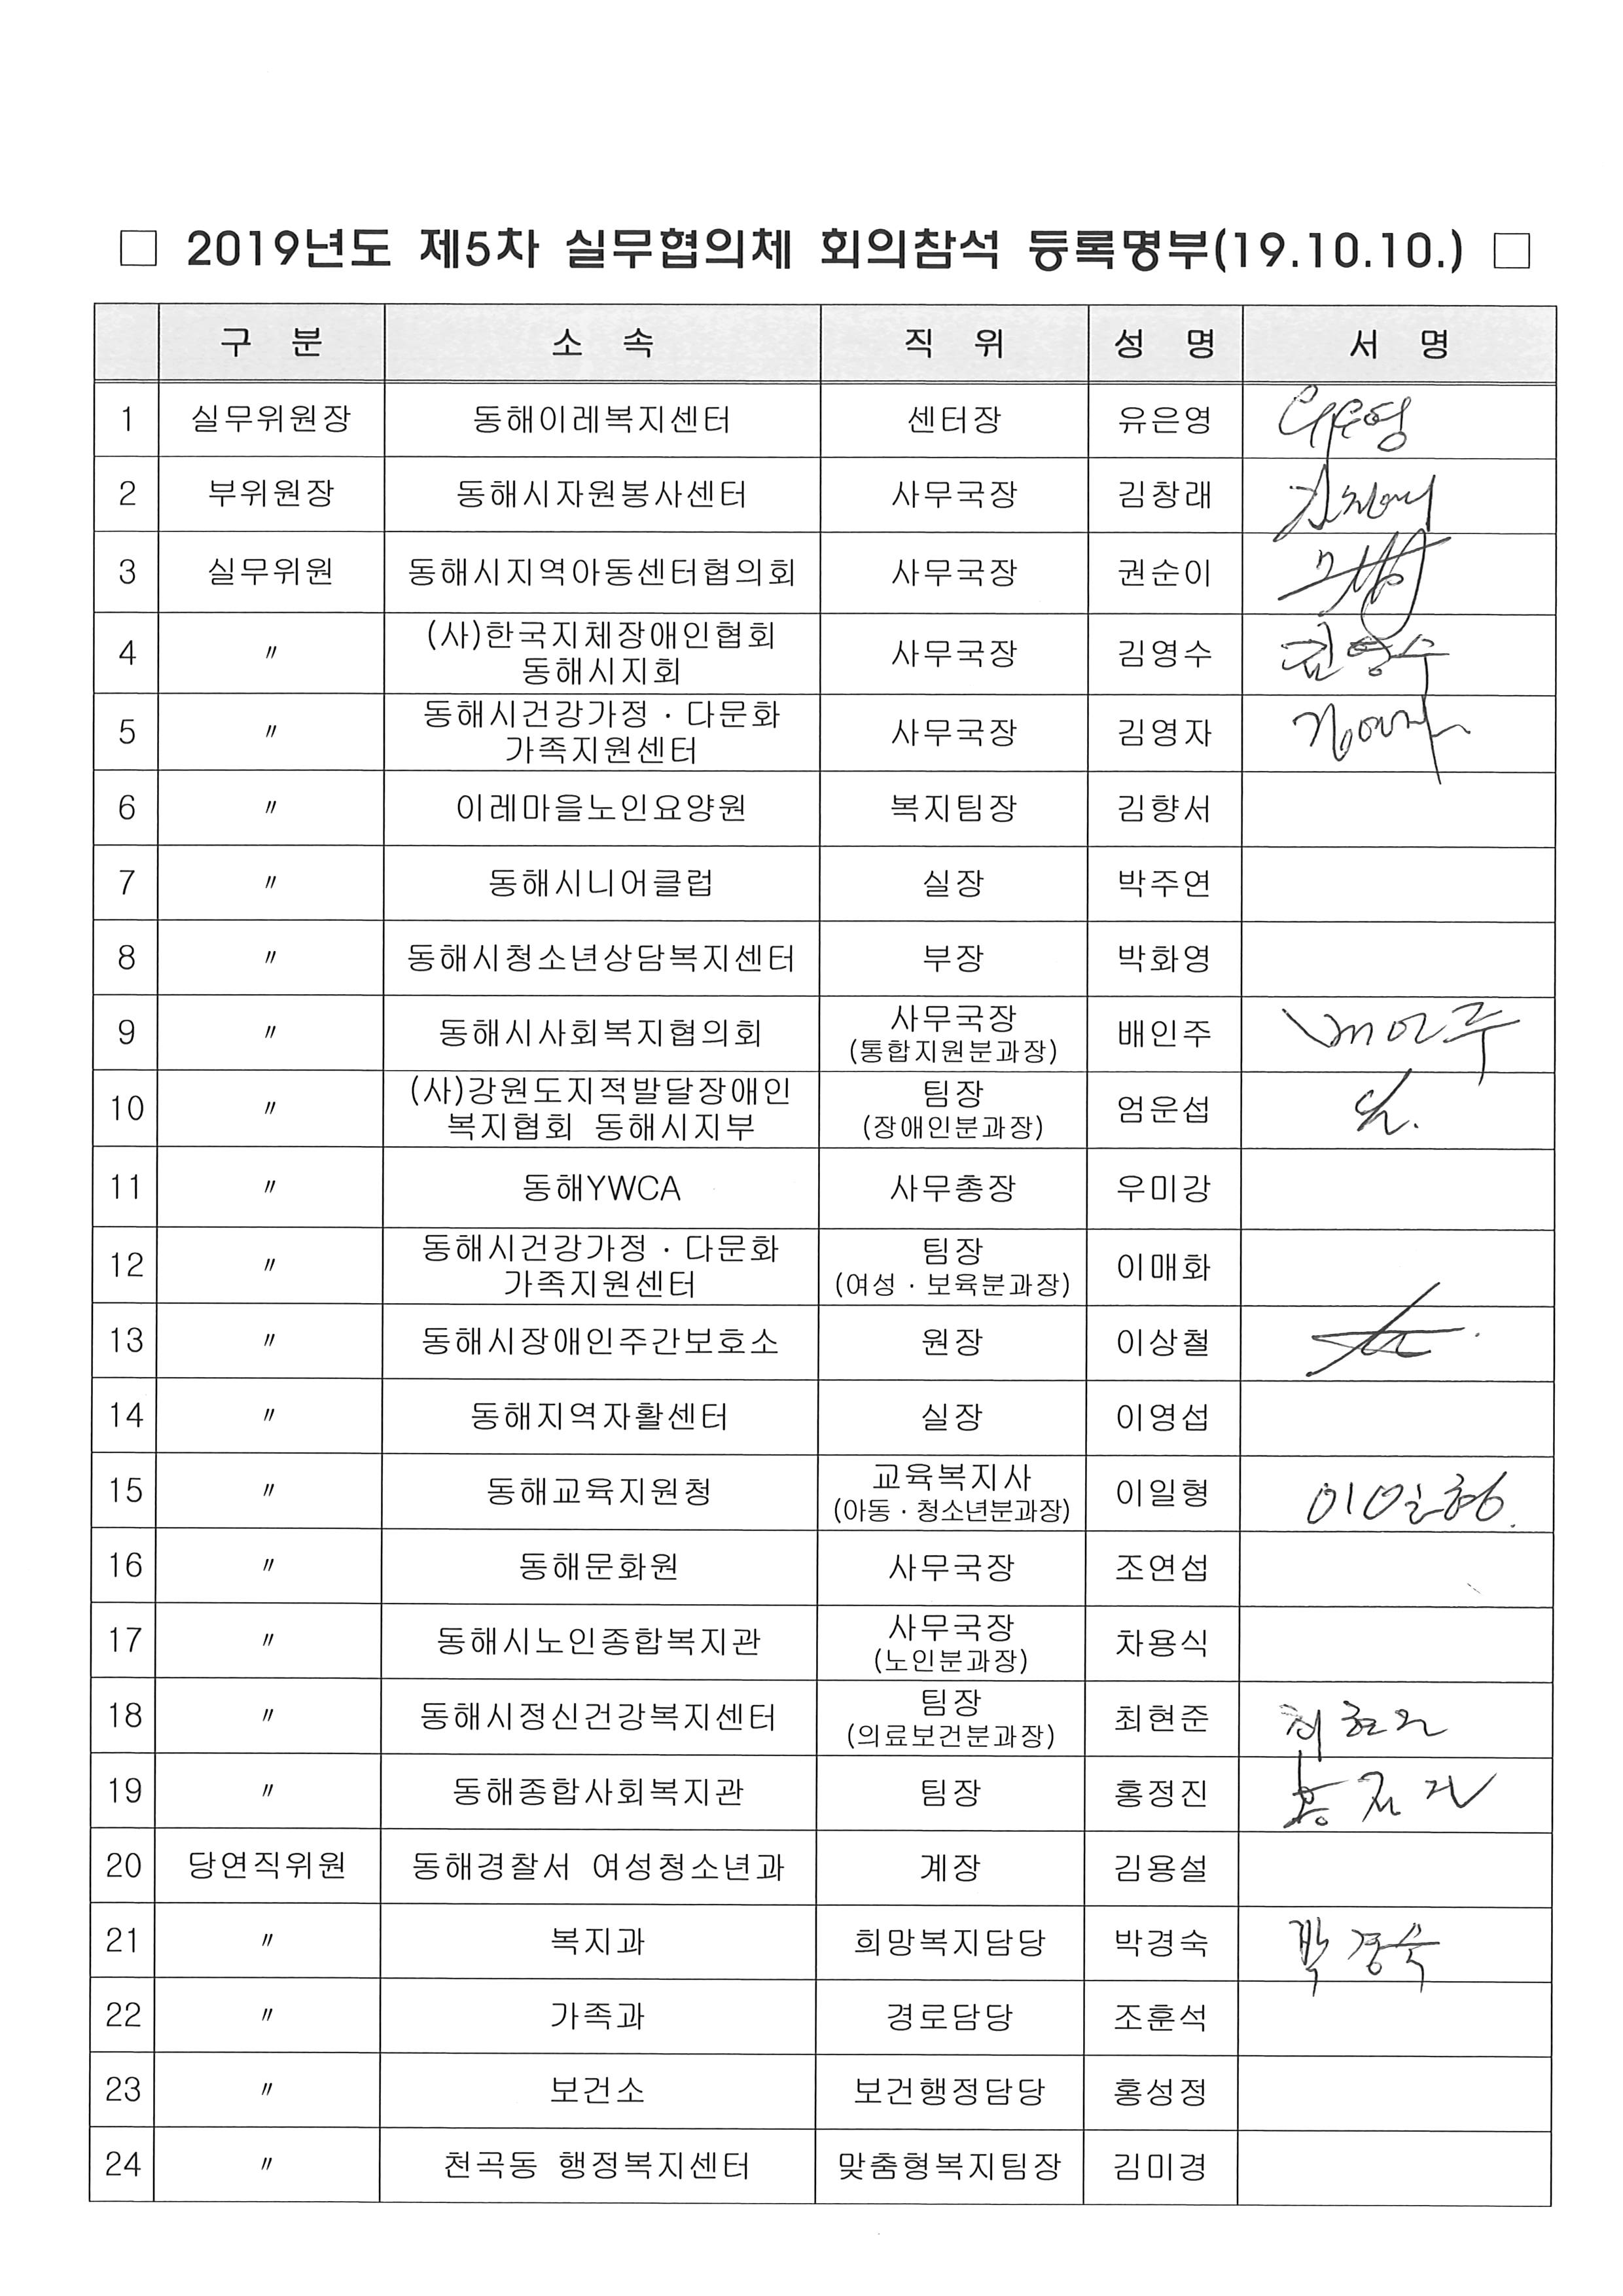 □ 2019년도 제5차 실무협의체 회의참석 등록명부(19.10.10.) □
구 분 소 속 직 위 성 명 서 명
1 실무위원장 동해이레복지센터 센터장 유은영 유은영
2 부위원장 동해시자원봉사센터 사무국장 김창래
3 실무위원 동해시지역아동센터협의회 사무국장 권순이
4 〃 (사)한국지체장애인협회
동해시지회 사무국장 김영수 김영수
5 〃 동해시건강가정 · 다문화
가족지원센터 사무국장 김영자 김영자
6 〃 이레마을노인요양원 복지팀장 김향서
7 〃 동해시니어클럽 실장 박주연
8 〃 동해시청소년상담복지센터 부장 박화영
9 〃 동해시사회복지협의회 사무국장
(통합지원분과장) 배인주 배인주
10 〃 (사)강원도지적발달장애인
복지협회 동해시지부 팀장
(장애인분과장) 엄운섭
11 〃 동해YWCA 사무총장 우미강
12 〃 동해시건강가정 · 다문화
가족지원센터 팀장
(여성 · 보육분과장) 이매화
13 〃 동해시장애인주간보호소 원장 이상철
14 〃 동해지역자활센터 실장 이영섭
15 〃 동해교육지원청 교육복지사
(아동 · 청소년분과장) 이일형 이일형.
16 〃 동해문화원 사무국장 조연섭
17 〃 동해시노인종합복지관 사무국장
(노인분과장) 차용식
18 〃 동해시정신건강복지센터 팀장
(의료보건분과장) 최현준 최현준
19 〃 동해종합사회복지관 팀장 홍정진 홍정진
20 당연직위원 동해경찰서 여성청소년과 계장 김용설
21 〃 복지과 희망복지담당 박경숙 박경숙
22 〃 가족과 경로담당 조훈석
23 〃 보건소 보건행정담당 홍성정
24 〃 천곡동 행정복지센터 맞춤형복지팀장 김미경